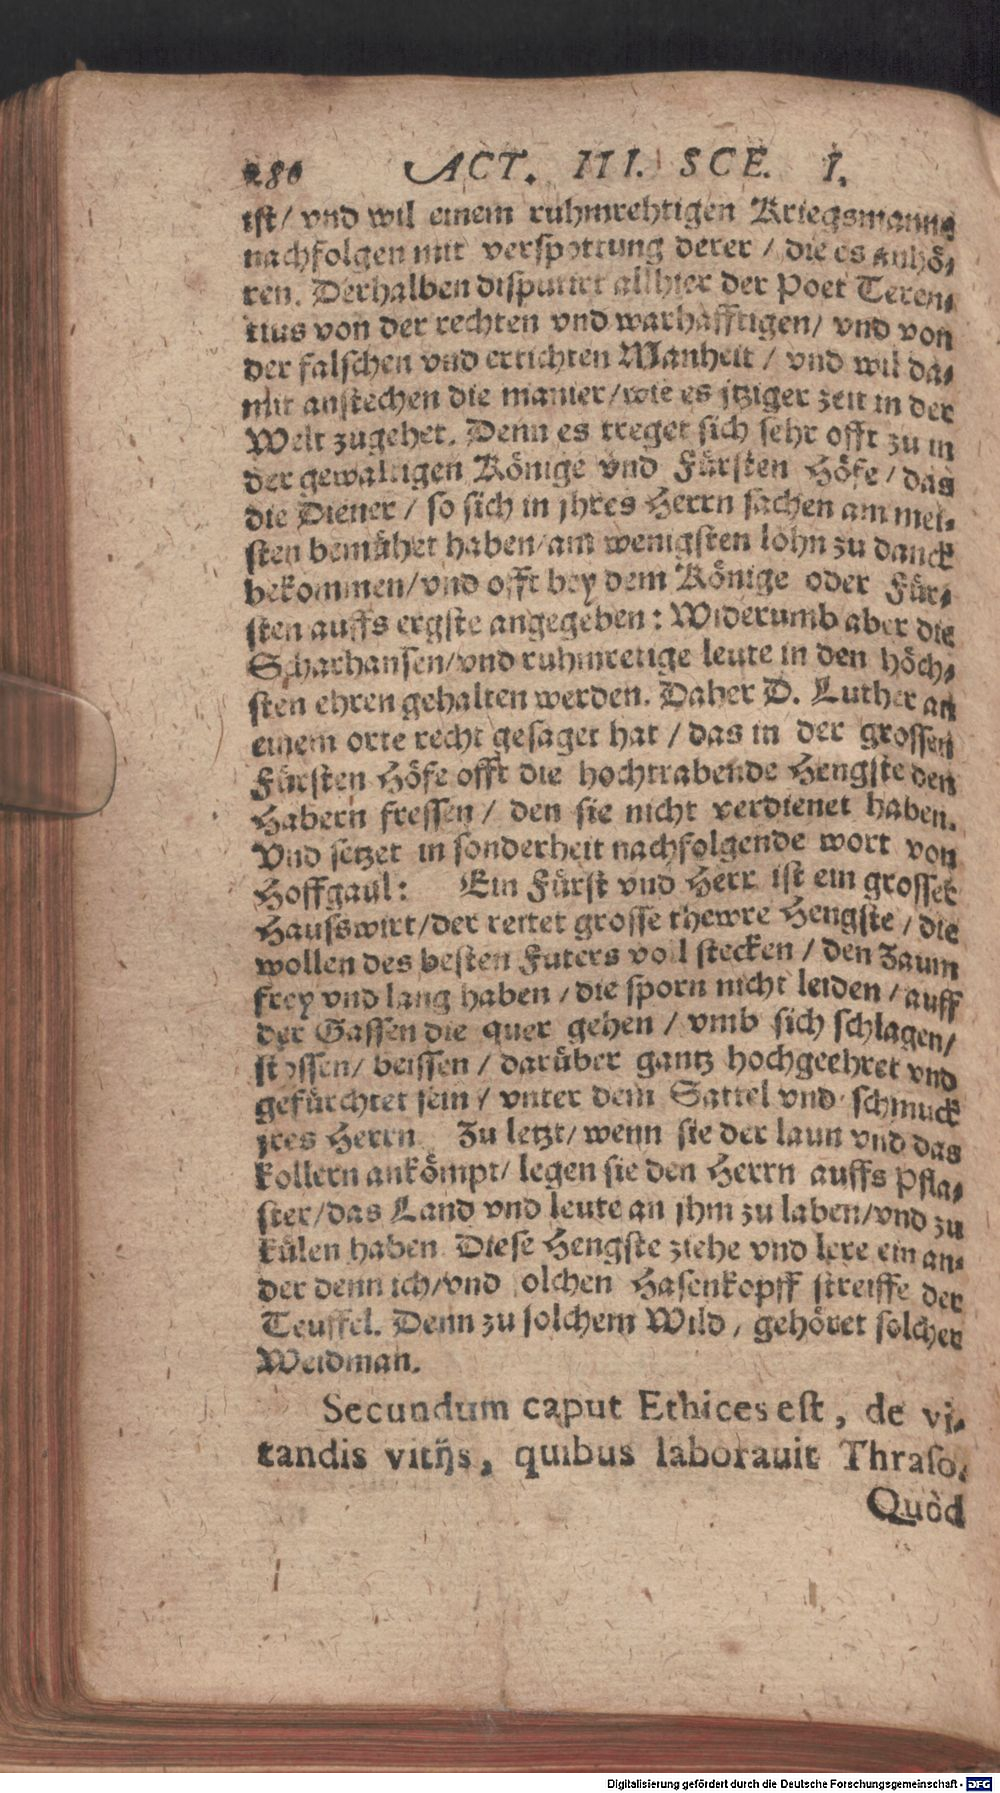 280 ACT. III. SCE. I.
ist/ vnd wil einem ruhmrehtigen Kriegsmanne
nachfolgen mit verspottung derer / die es anhö-
ren. Derhalben disputirt allhier der Poet Teren-
tius von der rechten vnd warhafftigen/ vnd von
der falschen vnd ertichten Manheit / vnd wil da-
mit anstechen die manier/wie es jtziger zeit in der
Welt zugehet. Denn es treget sich sehr offt zu in
der gewaltigen Könige vnd Fürsten Höfe / das
die Diener / so sich in jhres Herrn sachen am mei-
sten bemühet haben/am wenigsten lohn zu danck
bekommen/vnd offt bey dem Könige oder Für-
sten auffs ergste angegeben : Widerumb aber die
Scharhansen/vnd ruhmretige leute in den höch-
sten ehren gehalten werden. Daher D. Luther an
einem orte recht gesaget hat / das in der grossen
Fürsten Höfe offt die hochtrabende Hengste den
Habern fressen / den sie nicht verdienet haben.
Vnd setzet in sonderheit nachfolgende wort von
Hoffgaul: Ein Fürst vnd Herr ist ein grosser
Hausswirt/der reitet grosse thewre Hengste / die
wollen des besten Futers voll stecken / den Zaum
frey vnd lang haben / die sporn nicht leiden / auff
der Gassen die quer gehen / vmb sich schlagen/
stossen/ beissen / darüber gantz hochgeehret vnd
gefürchtet sein / vnter dem Sattel vnd schmuck
jres Herrn Zu letzt/ wenn sie der laun vnd das
kollern ankömpt/ legen sie den Herrn auffs Pfla-
ster/das Land vnd leute an jhm zu laben/vnd zu
külen haben Diese Hengste ziehe vnd lere ein an-
der denn ich/vnd solchen Hasenkopff streiffe der
Teuffel. Denn zu solchem Wild / gehöret solcher
Weidman.
Secundum caput Ethices est, de vi-
tandis vitijs, quibus laborauit Thraso.
Quòd
Digitalisierung gefördert durch die Deutsche Forschungsgemeinschaft - DFG